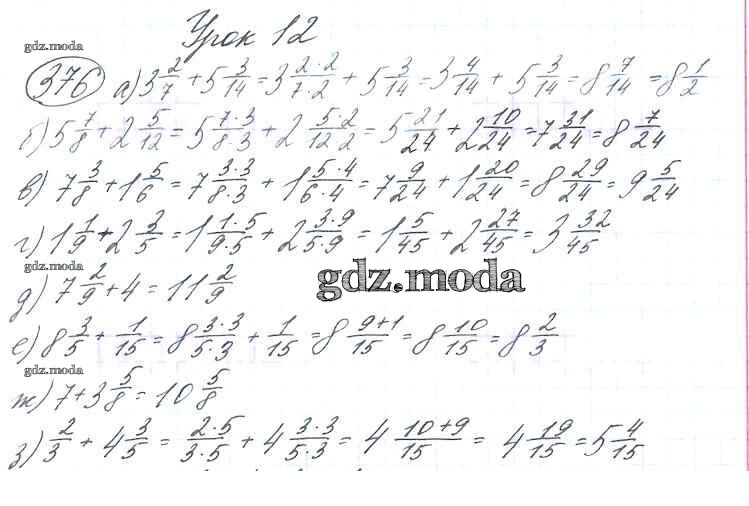 Урок 12
gdz.moda
376 а) 3 2/7 + 5 3/14 = 3 2·2/7·2 + 5 3/14 = 3 4/14 + 5 3/14 = 8 7/14 = 8 1/2
б) 5 7/8 + 2 5/12 = 5 7·3/8·3 + 2 5·2/12·2 = 5 21/24 + 2 10/24 = 7 31/24 = 8 7/24
в) 7 3/8 + 1 5/6 = 7 3·3/8·3 + 1 5·4/6·4 = 7 9/24 + 1 20/24 = 8 29/24 = 9 5/24
г) 1 1/9 + 2 3/5 = 1 1·5/9·5 + 2 3·9/5·9 = 1 5/45 + 2 27/45 = 3 32/45
gdz.moda
д) 7 2/9 + 4 = 11 2/9
gdz.moda
е) 8 3/5 + 1/15 = 8 3·3/5·3 + 1/15 = 8 9+1/15 = 8 10/15 = 8 2/3
gdz.moda
ж) 7 + 3 5/8 = 10 5/8
з) 2/3 + 4 3/5 = 2·5/3·5 + 4 3·3/5·3 = 4 10+9/15 = 4 19/15 = 5 4/15